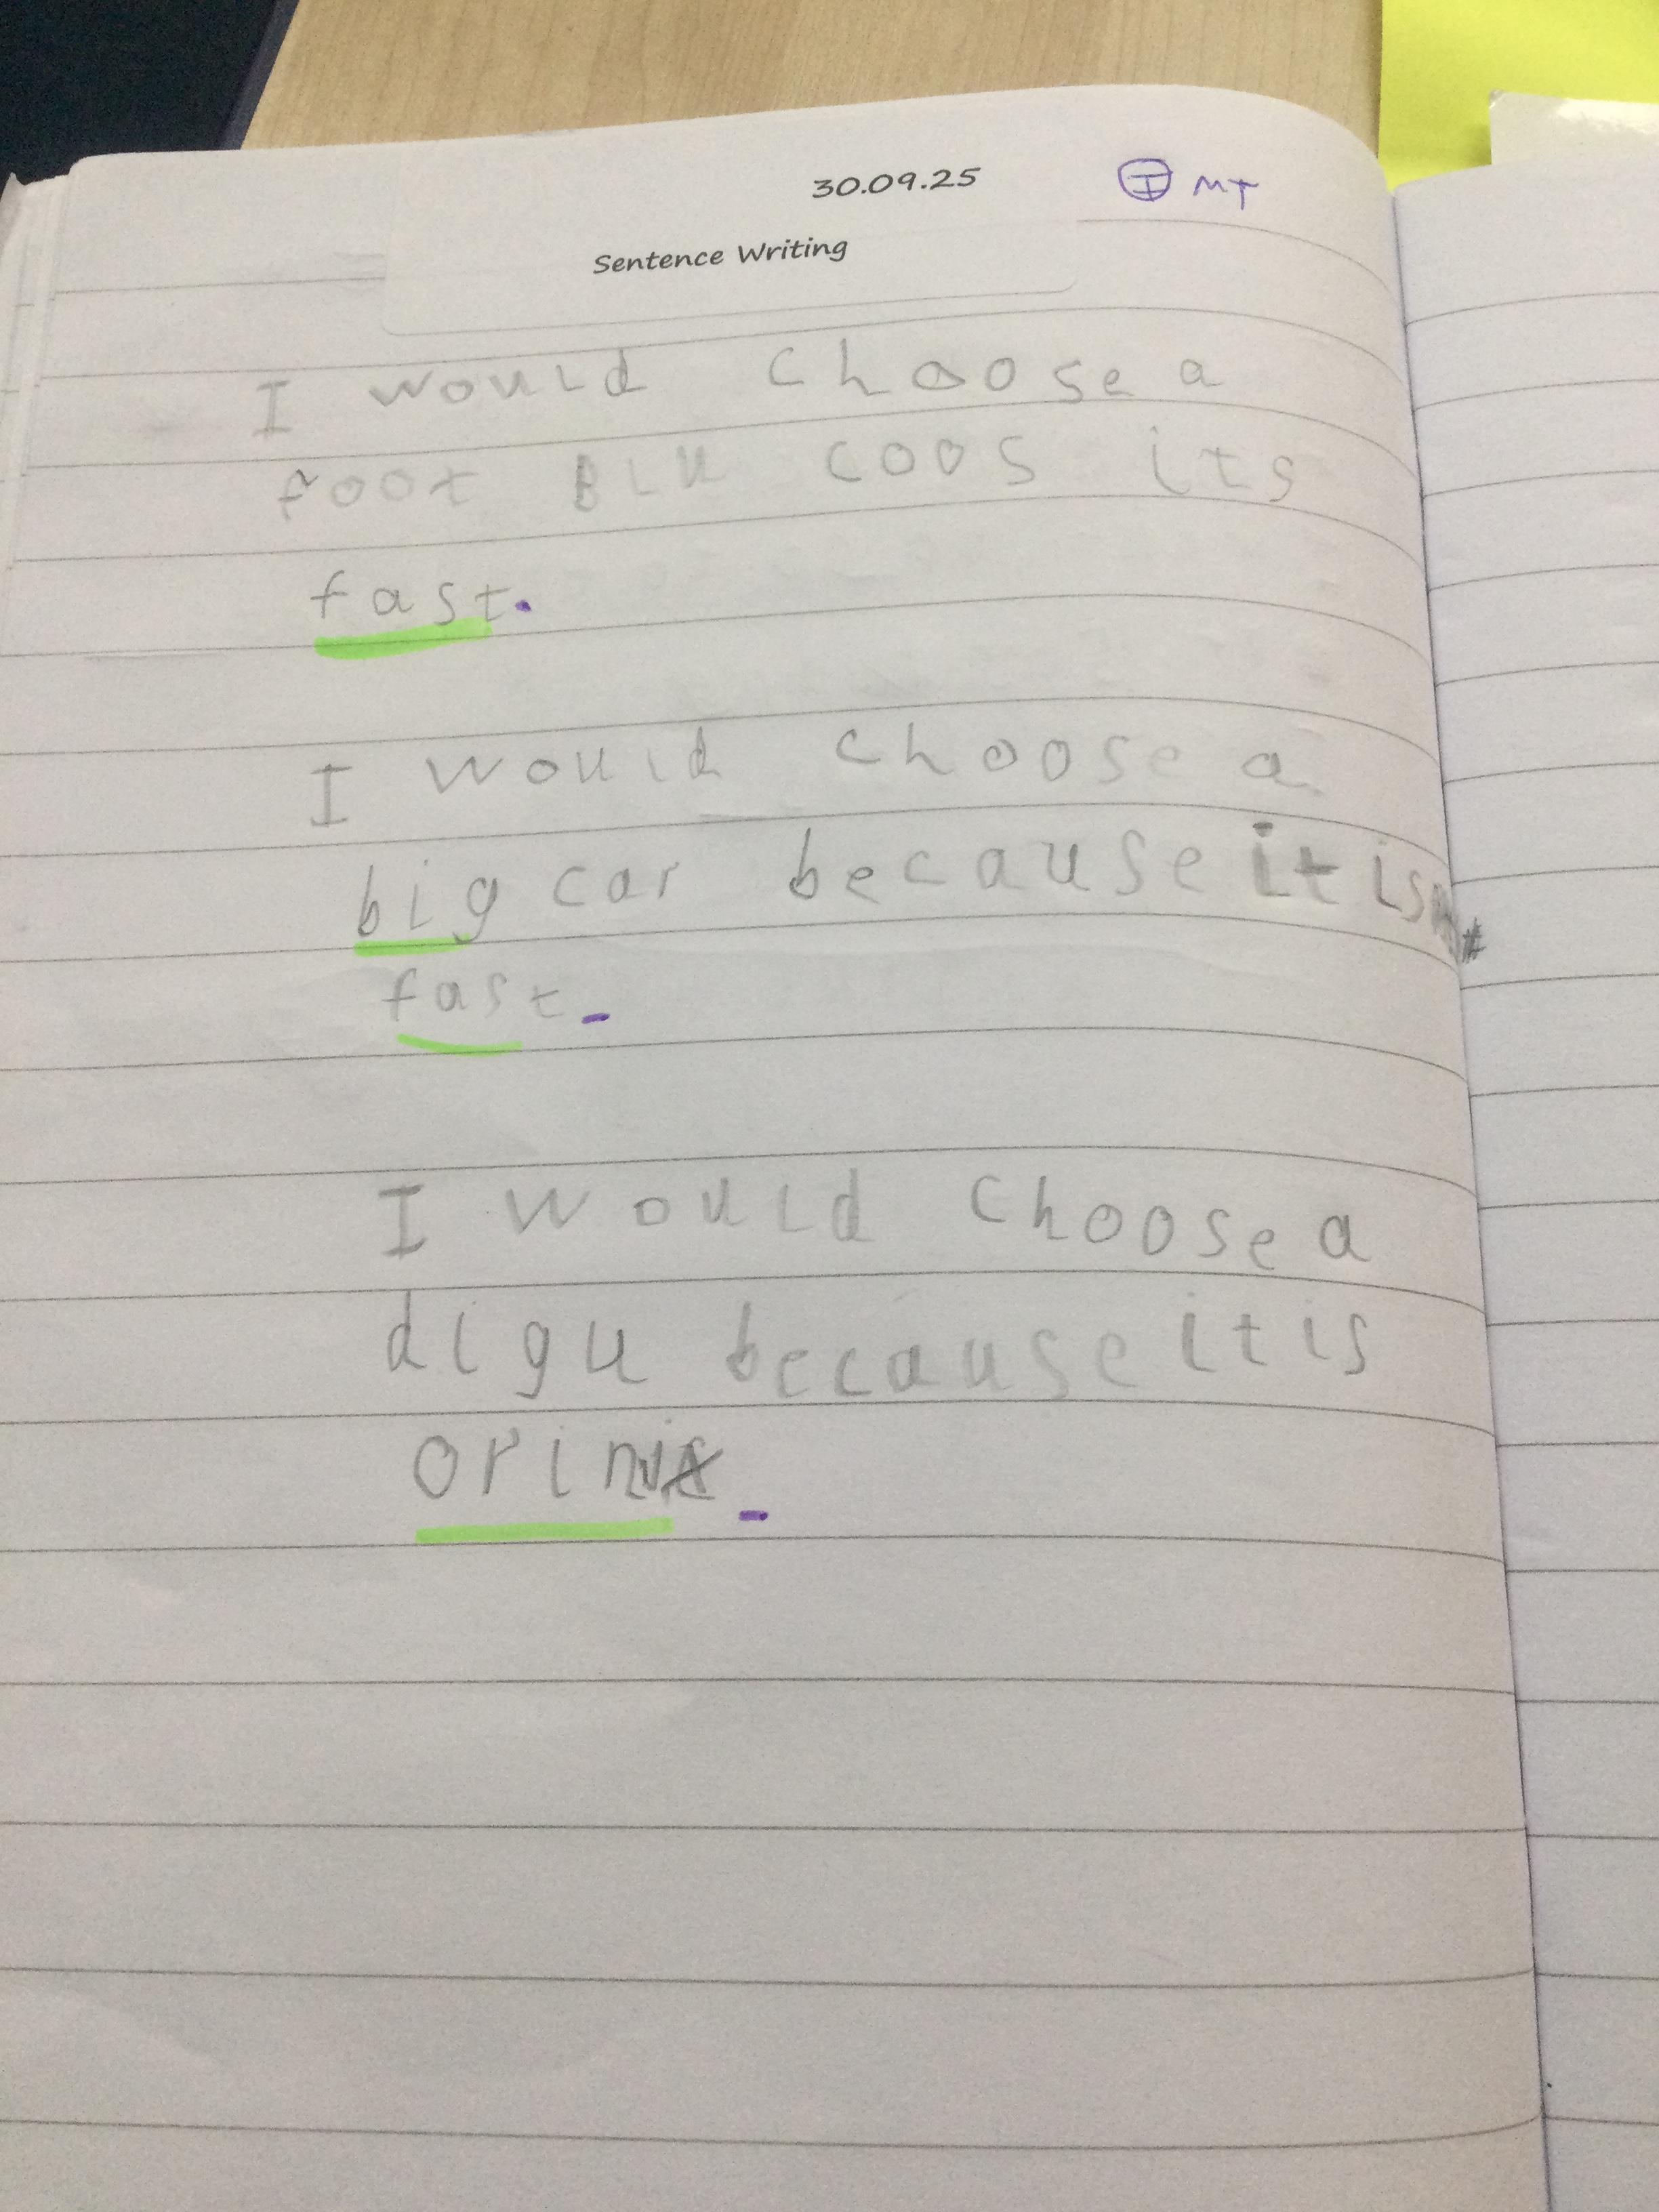 30.09.25 I MT
Sentence Writing
I would choose a
foot BLU coos its
fast.
I would choose a
big car because it is
fast.
I would choose a
digu because it is
orin